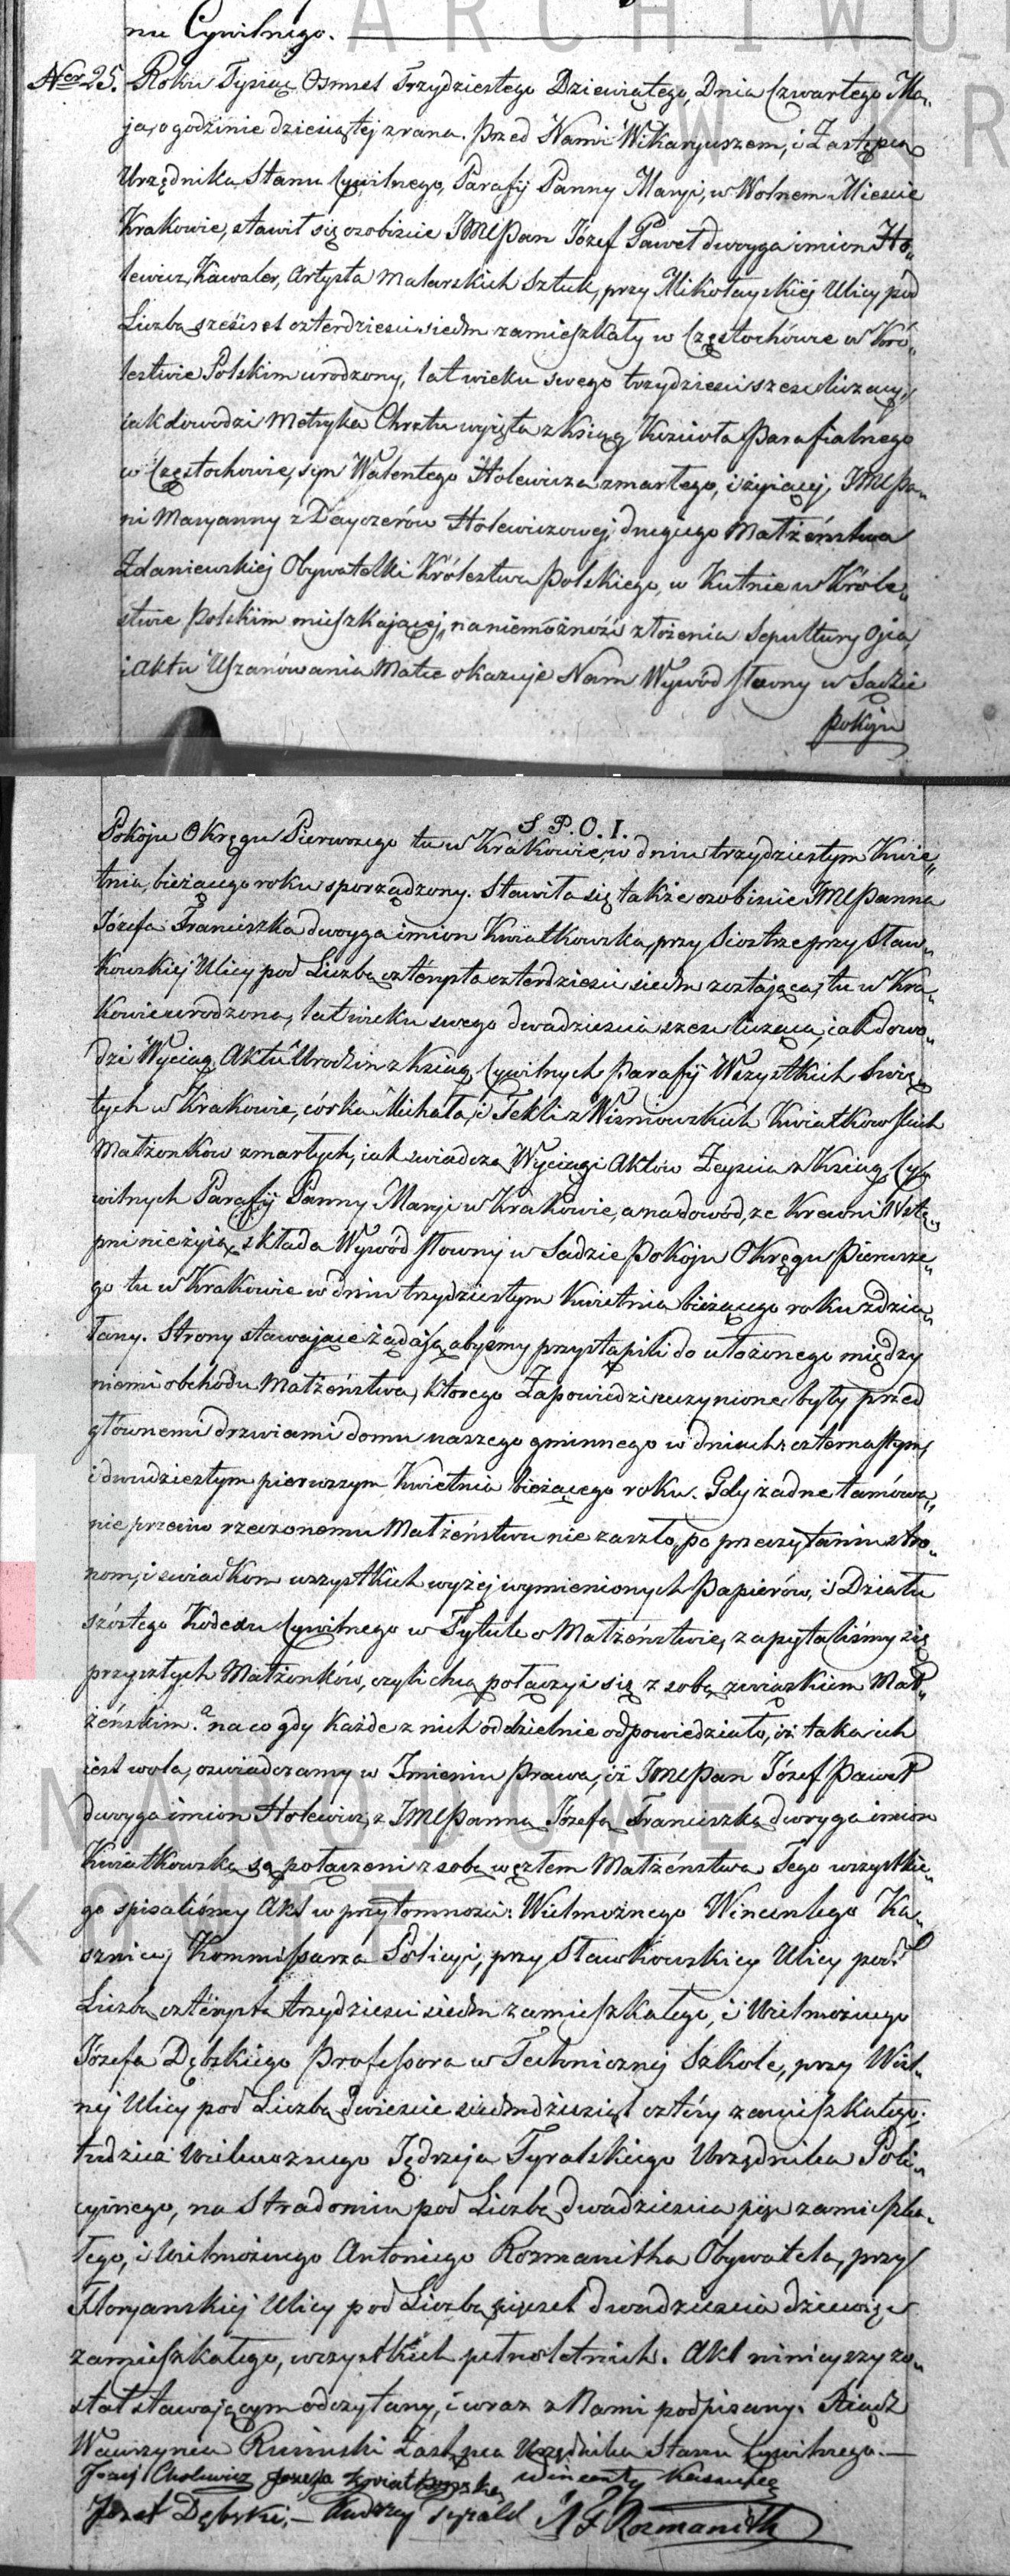 nu Cywilnego.
ARCHIWU
Ner 25. Roku Tysiąc Osmset Trzydziestego Dziewiątego, Dnia Czwartego Ma„
ja, o godzinie dziesiątéj zrana. Przed Nami Wikaryuszem, i Zastępcą
W KR
Urzędnika Stanu Cywilnego, Parafij Panny Maryi, w Wolnem Mieście
Krakowie, stawił się osobiście JMCPan Józef Paweł dwoyga imion Ho„
lewicz, Kawaler, Artysta Malarskich Sztuk, przy Mikołayskiéj Ulicy pod
Liczbą sześćset czterdzieści siedm zamieszkały w Częstochowie w Kró„
lestwie Polskim urodzony, lat wieku swego trzydzieści sześć liczący,
iak dowodzi Metryka Chrztu wyięta z Ksiąg Kościoła Parafialnego
w Częstochowie, syn Walentego Holewicza zmarłego, i żyiącéj, JMCPa„
ni Maryanny z Dayczerów Holewiczowej, drugiego Małżeństwa
Zdaniewskiéj Obywatelki Królestwa Polskiego, w Kutnie w Króle„
stwie Polskim mieszkającéj, na niemożność złożenia Sepultury Ojca,
i Aktu Uszanowania Matce okazuje Nam Wywód słowny w Sądzie
Pokoju
S P. O. I.
Pokoju Okręgu Pierwszego tu w Krakowie, w dniu trzydziestym Kwie„
tnia, bieżącego roku sporządzony. Stawiła się także osobiście JMCPanna
Józefa Franciszka dwoyga imion Kwiatkowska, przy Siostrze przy Sław„
kowskiéj Ulicy pod Liczbą czterysta czterdzieści siedm zostająca, tu w Kra„
kowie urodzona, lat wieku swego dwadzieścia sześć licząca, iak dowo„
dzi Wyciąg Aktu Urodzin z Ksiąg Cywilnych Parafij Wszystkich Świę„
tych w Krakowie, córka Michała, i Tekli z Wismowskich Kwiatkowskich
Małżonków zmarłych, iak świadczą Wyciągi Aktów Zeyścia z Ksiąg Cy„
wilnych Parafij Panny Maryi w Krakowie, a na dowód, że Krewni Wstę„
pni nieżyią, składa Wywód słowny w Sądzie Pokoju Okręgu Pierwsze„
go tu w Krakowie w dniu trzydziestym Kwietnia bieżącego roku zdzia„
łany. Strony stawające żądają, abyśmy przystąpili do ułożonego między
niemi obchodu Małżeństwa, którego Zapowiedzi uczynione były przed
głównemi drzwiami domu naszego gminnego w dniach czternastym,
i dwudziestym pierwszym Kwietnia bieżącego roku. Gdy żadne tamowa„
nie przeciw rzeczonemu Małżeństwu nie zaszło, po przeczytaniu stro„
nom, i świadkom wszystkich wyżéj wymienionych Papierów, i Działu
szóstego Kodexu Cywilnego w Tytule o Małżeństwie, zapytaliśmy się
przyszłych Małżonków, czyli chcą połączyć się z sobą związkiem Mał„
żeńskim? na co gdy każde z nich oddzielnie odpowiedziało, iż taka ich
iest wola, oświadczamy w Imieniu Prawa, iż JMCPan Józef Paweł
NARODOWE
dwoyga imion Holewicz, z JMCPanną Józefą Franciszką dwoyga imion
Kwiatkowską są połączeni z sobą węzłem Małżeństwa. Tego wszystkie„
go spisaliśmy Akt w przytomności: Wielmożnego Wincentego Ka„
KOWIE
sznicy Kommissarza Policyi, przy Sławkowskiey Ulicy pod
Liczbą czterysta trzydzieści siedm zamieszkałego, i Wielmożnego
Józefa Dębskiego Professora w Technicznéj Szkole, przy Wiśl„
néj Ulicy pod Liczbą dwieście siedmdziesiąt cztéry zamieszkałego,
tudzież Wielmożnego Jędrzeja Tyralskiego Urzędnika Poli„
cyinego, na Stradomiu pod Liczbą dwadzieścia pięć zamieszka„
łego, i Wielmożnego Antoniego Rozmanitha Obywatela, przy
Floryanskiéj Ulicy pod Liczbą pięćset dwadzieścia dziewięć
zamieszkałego, wszystkich pełnoletnich. Akt niniejszy zo„
stał stawającym odczytany, i wraz z Nami podpisany. Xiądz
Wawrzyniec Zastępca Urzędnika Stanu Cywilnego.—
Józef Cholewicz Józefa Kwiatkowska Wincenty Kasznica
Józef Dębski,— Andrzej Tyralsk A F Rozmanith